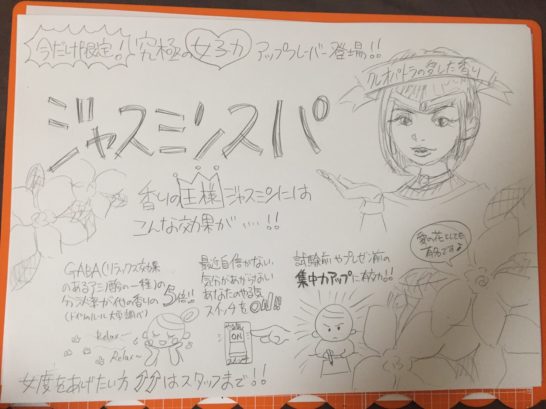 今だけ限定!
究極の女子力アップフレーバー登場!!
クレオパトラの愛した香り
ジャスミンスパ
香りの王様ジャスミンには
こんな効果が・・・!!
GABA(リラックス効果
のあるアミノ酸の一種)の
分泌率が他の香りの5倍!!
最近自信がない
気分があがらない
あなたのやる気
スイッチをON!!
試験前やプレゼン前の
集中力アップに有効!!
愛の花としても
有名です
Relax~
Relax~
ON
女度をあげたい方
はスタッフまで!!